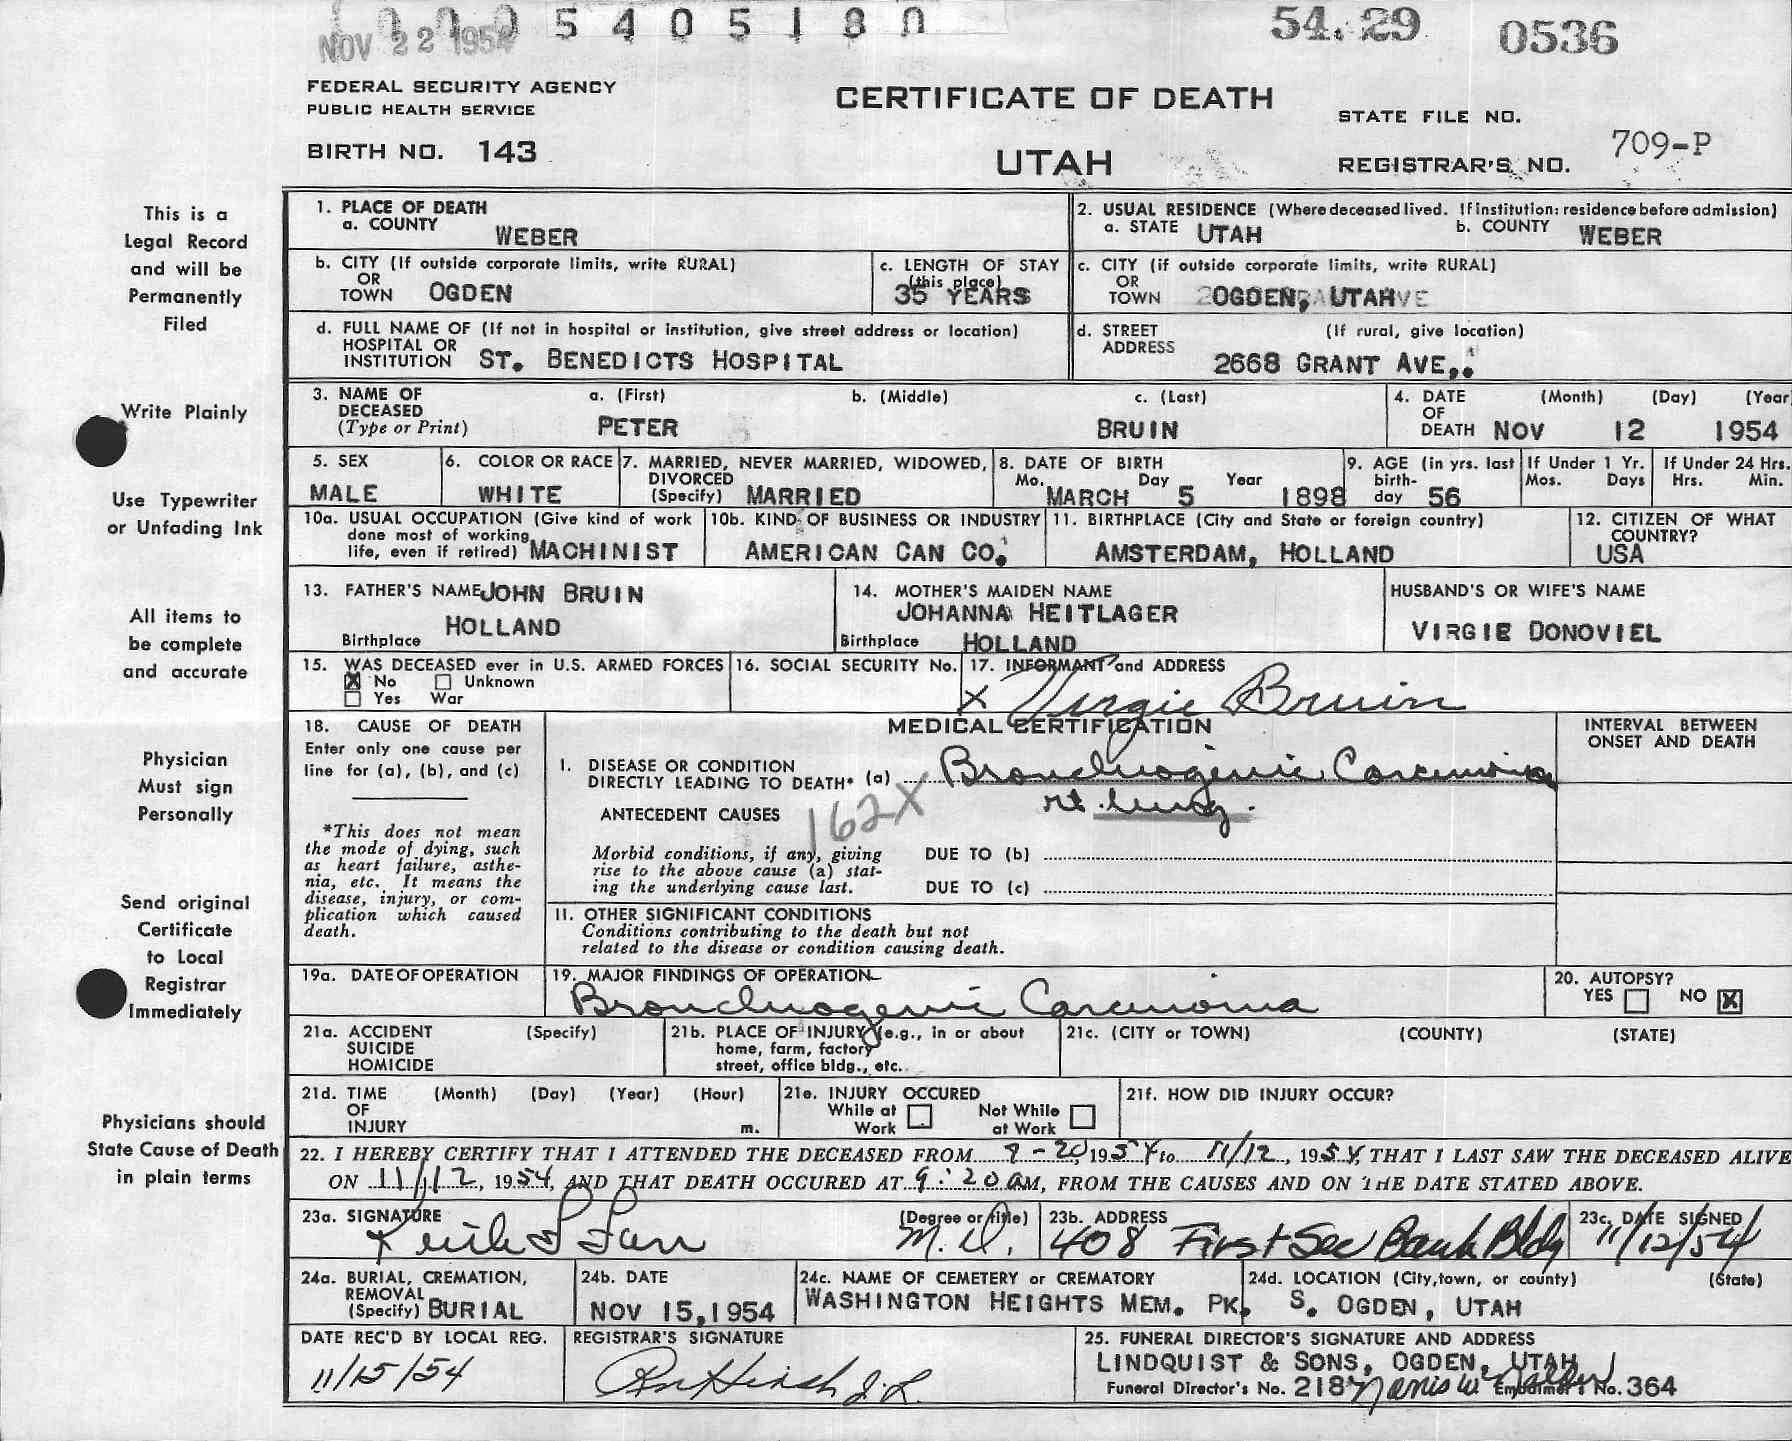 NOV 22 1954 5405180 54.29 0536
FEDERAL SECURITY AGENCY
PUBLIC HEALTH SERVICE
CERTIFICATE OF DEATH
STATE FILE NO.
BIRTH NO. 143
UTAH
REGISTRAR'S NO. 709-P
This is a
Legal Record
and will be
Permanently
Filed
Write Plainly
Use Typewriter
or Unfading Ink
All items to
be complete
and accurate
Physician
Must sign
Personally
Send original
Certificate
to Local
Registrar
Immediately
Physicians should
State Cause of Death
in plain terms
1. PLACE OF DEATH
a. COUNTY WEBER
2. USUAL RESIDENCE (Where deceased lived. If institution: residence before admission)
a. STATE UTAH b. COUNTY WEBER
b. CITY (If outside corporate limits, write RURAL)
OR
TOWN OGDEN
c. LENGTH OF STAY
(this place)
35 YEARS
c. CITY (if outside corporate limits, write RURAL)
OR
TOWN OGDEN, UTAH
d. FULL NAME OF (If not in hospital or institution, give street address or location)
HOSPITAL OR
INSTITUTION ST. BENEDICTS HOSPITAL
d. STREET (If rural, give location)
ADDRESS
2668 GRANT AVE,.
3. NAME OF a. (First) b. (Middle) c. (Last)
DECEASED
(Type or Print) PETER BRUIN
4. DATE (Month) (Day) (Year
OF
DEATH NOV 12 1954
5. SEX
MALE
6. COLOR OR RACE
WHITE
7. MARRIED, NEVER MARRIED, WIDOWED,
DIVORCED
(Specify) MARRIED
8. DATE OF BIRTH
Mo. Day Year
MARCH 5 1898
9. AGE (in yrs. last
birth-
day 56
If Under 1 Yr.
Mos. Days
If Under 24 Hrs.
Hrs. Min.
10a. USUAL OCCUPATION (Give kind of work
done most of working
life, even if retired) MACHINIST
10b. KIND OF BUSINESS OR INDUSTRY
AMERICAN CAN CO.
11. BIRTHPLACE (City and State or foreign country)
AMSTERDAM, HOLLAND
12. CITIZEN OF WHAT
COUNTRY?
USA
13. FATHER'S NAME JOHN BRUIN
Birthplace HOLLAND
14. MOTHER'S MAIDEN NAME
JOHANNA HEITLAGER
Birthplace HOLLAND
HUSBAND'S OR WIFE'S NAME
VIRGIE DONOVIEL
15. WAS DECEASED ever in U.S. ARMED FORCES
X No Unknown
Yes War
16. SOCIAL SECURITY No.
17. INFORMANT and ADDRESS
x Virgie Bruin
18. CAUSE OF DEATH
Enter only one cause per
line for (a), (b), and (c)
*This does not mean
the mode of dying, such
as heart failure, asthe-
nia, etc. It means the
disease, injury, or com-
plication which caused
death.
MEDICAL CERTIFICATION
INTERVAL BETWEEN
ONSET AND DEATH
I. DISEASE OR CONDITION
DIRECTLY LEADING TO DEATH* (a) Bronchiogenic Carcinoma
rt. lung.
ANTECEDENT CAUSES 162X
Morbid conditions, if any, giving
rise to the above cause (a) stat-
ing the underlying cause last.
DUE TO (b)
DUE TO (c)
II. OTHER SIGNIFICANT CONDITIONS
Conditions contributing to the death but not
related to the disease or condition causing death.
19a. DATE OF OPERATION
19. MAJOR FINDINGS OF OPERATION
Bronchiogenic Carcinoma
20. AUTOPSY?
YES NO X
21a. ACCIDENT (Specify)
SUICIDE
HOMICIDE
21b. PLACE OF INJURY (e.g., in or about
home, farm, factory
street, office bldg., etc.
21c. (CITY or TOWN) (COUNTY) (STATE)
21d. TIME (Month) (Day) (Year) (Hour)
OF
INJURY m.
21e. INJURY OCCURED
While at Not While
Work at Work
21f. HOW DID INJURY OCCUR?
22. I HEREBY CERTIFY THAT I ATTENDED THE DECEASED FROM 9-20, 1954 to 11/12, 1954, THAT I LAST SAW THE DECEASED ALIVE
ON 11/12, 1954, AND THAT DEATH OCCURED AT 9:20 AM, FROM THE CAUSES AND ON THE DATE STATED ABOVE.
23a. SIGNATURE (Degree or title)
Keith M.D.
23b. ADDRESS
408 First Sec Bank Bldg
23c. DATE SIGNED
11/12/54
24a. BURIAL, CREMATION,
REMOVAL
(Specify) BURIAL
24b. DATE
NOV 15, 1954
24c. NAME OF CEMETERY or CREMATORY
WASHINGTON HEIGHTS MEM. PK.
24d. LOCATION (City, town, or county) (State)
S. OGDEN, UTAH
DATE REC'D BY LOCAL REG.
11/15/54
REGISTRAR'S SIGNATURE
25. FUNERAL DIRECTOR'S SIGNATURE AND ADDRESS
LINDQUIST & SONS, OGDEN, UTAH
Funeral Director's No. 218 Embalmer's No. 364